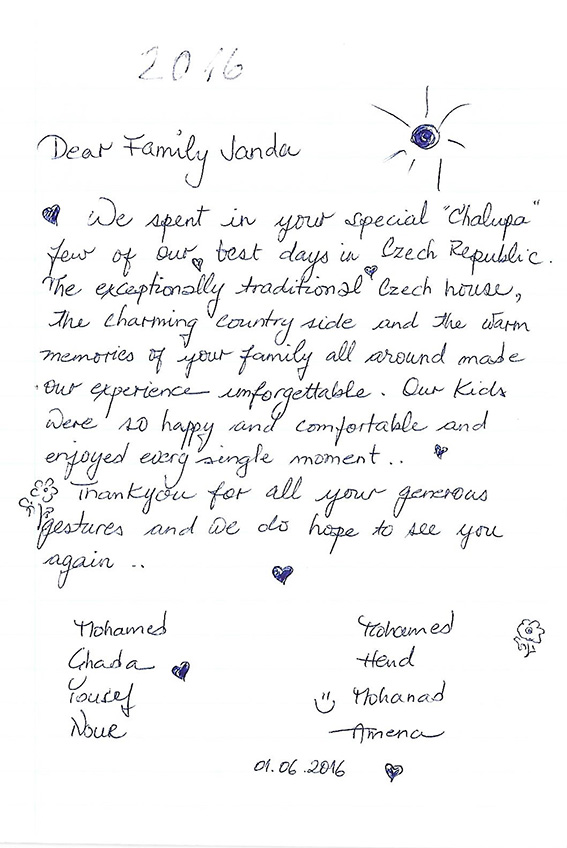 2016
Dear Family Janda
We spent in your special "Chalupa"
few of our best days in Czech Republic.
The exceptionally traditional Czech house,
the charming country side and the warm
memories of your family all around made
our experience unforgettable. Our Kids
were so happy and comfortable and
enjoyed every single moment..
Thankyou for all your generous
gestures and we do hope to see you
again ..
Mohamed Mohamed
Ghada Hend
Yousef Mohanad
Nour Amena
01.06.2016